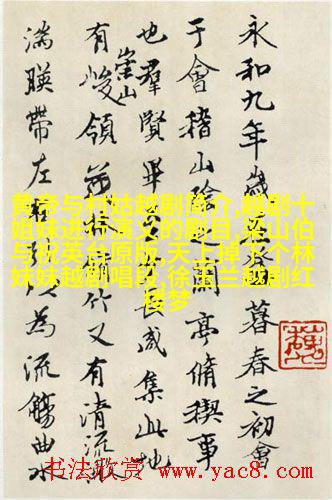 永和九年歲在癸丑暮春之初會
于會稽山陰之蘭亭脩稧事
也羣賢畢至少長咸集此地
有崇山峻領茂林脩竹又有清流激
湍暎帶左右引以為流觴曲水
黄帝与村姑越剧简介,越剧十
姐妹进行演义的剧目,梁山伯
与祝英台原版,天上掉下个林
妹妹越剧唱段,徐玉兰越剧红
楼梦
书法欣赏 www.yac8.com